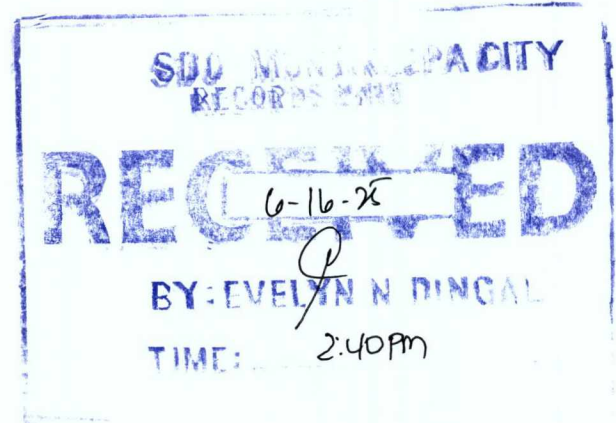 SDO MUNTINLUPA CITY
RECORDS
RECEIVED
6-16-25
BY: EVELYN N DINGAL
TIME: 2:40PM